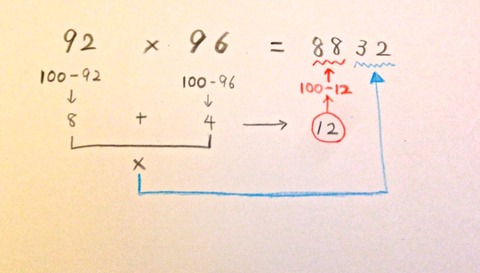 92 × 96 = 8832
100-92 100-96 100-12
8 + 4 12
×